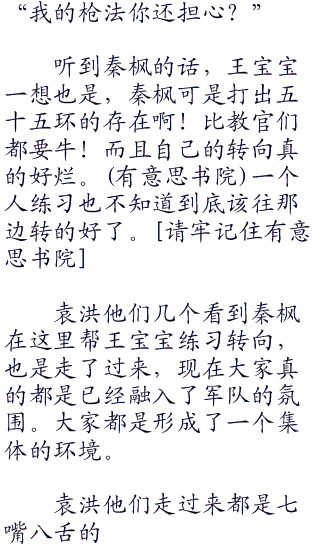 “我的枪法你还担心？”
听到秦枫的话，王宝宝
一想也是，秦枫可是打出五
十五环的存在啊！比教官们
都要牛！而且自己的转向真
的好烂。(有意思书院)一个
人练习也不知道到底该往那
边转的好了。[请牢记住有意
思书院]
袁洪他们几个看到秦枫
在这里帮王宝宝练习转向，
也是走了过来，现在大家真
的都是已经融入了军队的氛
围。大家都是形成了一个集
体的环境。
袁洪他们走过来都是七
嘴八舌的